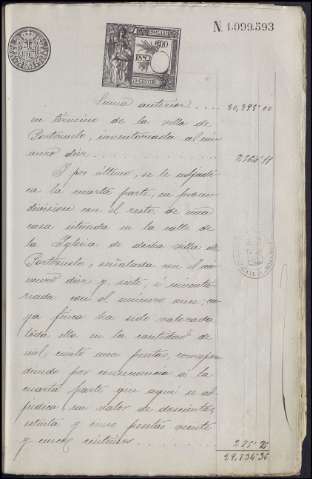 N.1.099.593
Suma anterior .... 
en término de la villa de
Portezuelo, inventariada al nú-
mero diez
Y por último, se le adjudi-
ca la cuarta parte, en proin-
division con el resto, de una
casa situada en la calle de
la Iglesia de dicha villa de
Portezuelo, señalada con el nú-
mero diez y siete, é inventa-
riada con el número once, cu-
ya finca ha sido valorada
toda ella en la cantidad de
mil ciento una pesetas, correspon-
diendo por consecuencia a la
cuarta parte que aquí se ad-
judica un valor de doscientas
setenta y cinco pesetas veinte
y cinco céntimos
275.25